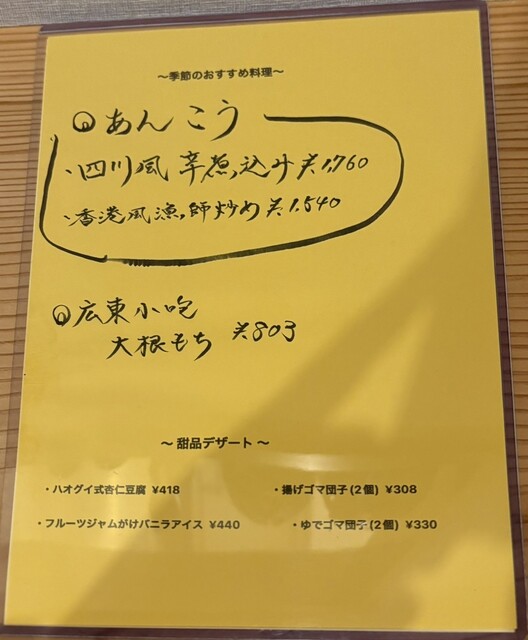 ～季節のおすすめ料理～
あんこう
・四川風 辛煮込み ¥1,760
・香港風漁師炒め ¥1,540
広東小吃
大根もち ¥803
～ 甜品デザート ～
・ハオグイ式杏仁豆腐 ¥418
・揚げゴマ団子(2個) ¥308
・フルーツジャムがけバニラアイス ¥440
・ゆでゴマ団子(2個) ¥330